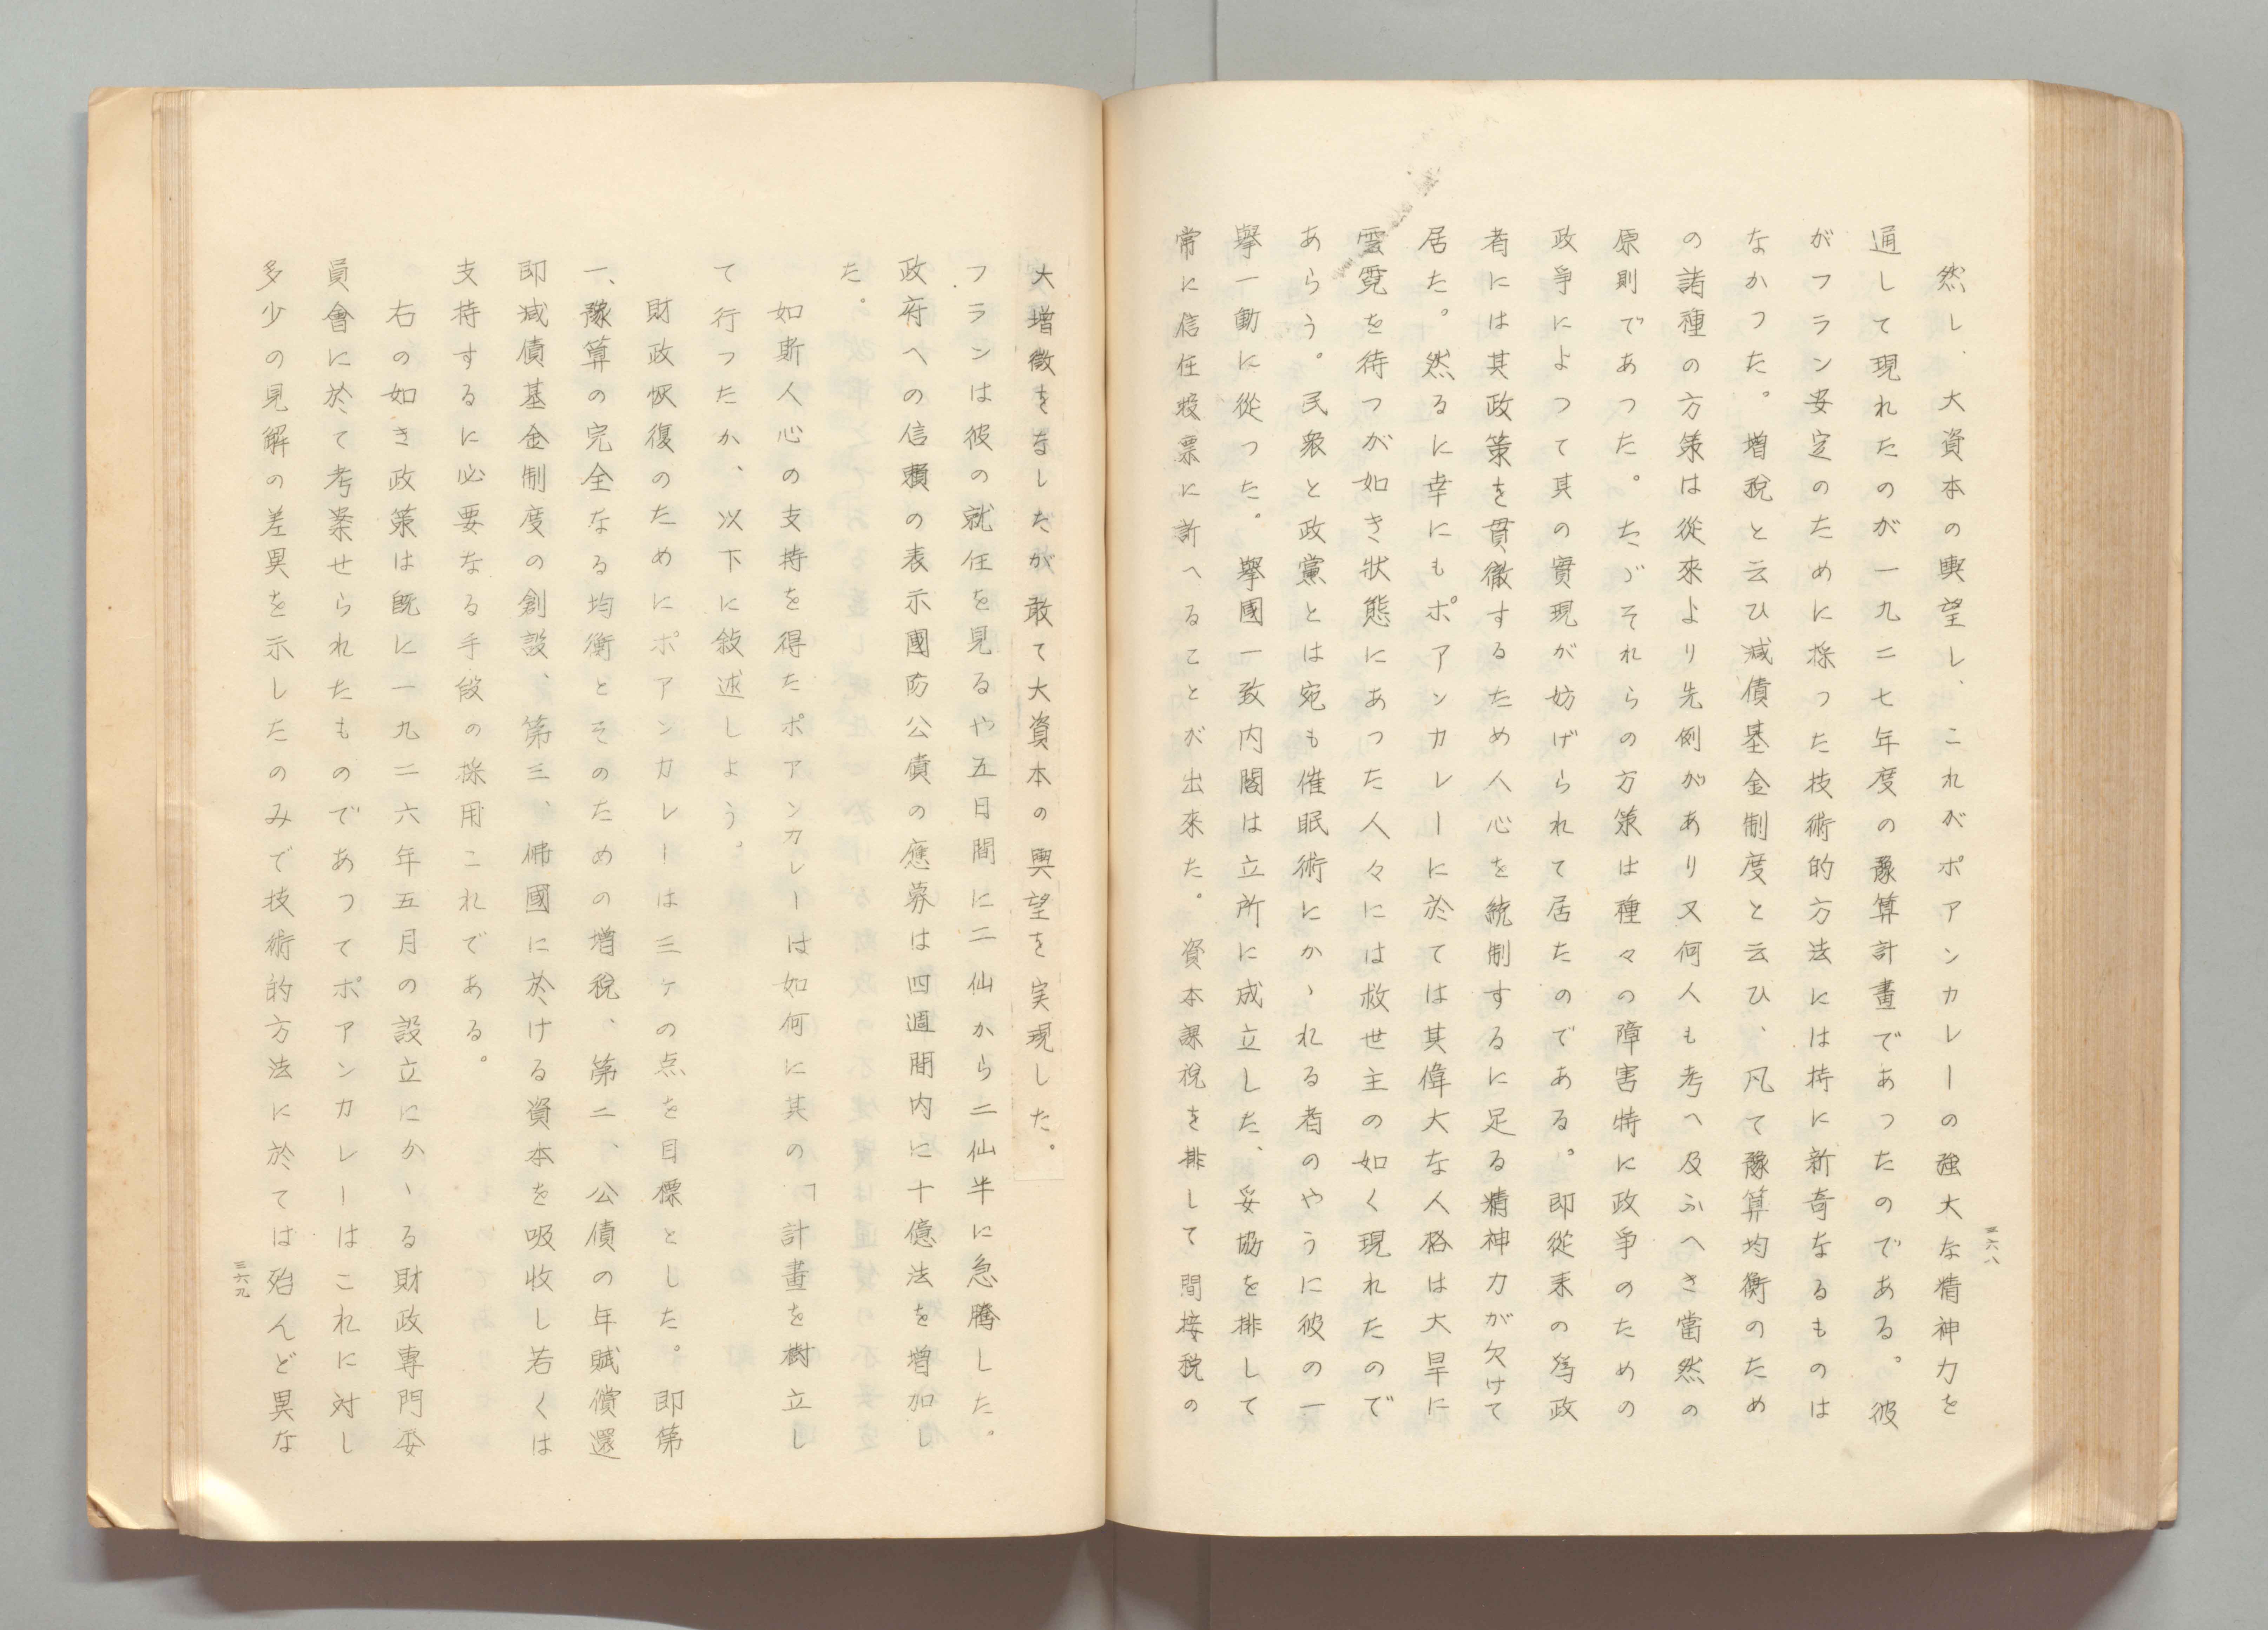 然し、大資本の輿望し、これがポアンカレーの強大な精神力を
通して現れたのが一九二七年度の豫算計畫であつたのである。彼
がフラン安定のために採つた技術的方法には持に新奇なるものは
なかつた。増税と云ひ減債基金制度と云ひ、凡て豫算均衡のため
の諸種の方策は從來より先例があり又何人も考へ及ふへき當然の
原則であつた。たゞそれらの方策は種々の障害特に政争のための
政爭によつて其の實現が妨げられて居たのである。即從来の為政
者には其政策を貫徹するため人心を統制するに足る精神力が欠けて
居た。然るに幸にもポアンカレーに於ては其偉大な人格は大旱に
雲霓を待つが如き狀態にあつた人々には救世主の如く現れたので
あらう。民衆と政黨とは宛も催眠術にかゝれる者のやうに彼の一
擧一動に從つた。擧國一致内閣は立所に成立した、妥協を排して
常に信任投票に訴へることが出來た。資本課税を排して間接税の
三六八
大増徴をなしたが敢て大資本の輿望を実現した。
フランは彼の就任を見るや五日間に二仙から二仙半に急騰した。
政府への信賴の表示國防公債の應募は四週間内に十億法を増加し
た。
如斯人心の支持を得たポアンカレーは如何に其の「計畫を樹立し
て行つたか、以下に敍述しよう。
財政恢復のためにポアンカレーは三ケの点を目標とした。即第
一、豫算の完全なる均衡とそのための増税、第二、公債の年賦償還
即減債基金制度の創設、第三、佛國に於ける資本を吸收し若くは
支持するに必要なる手段の採用これである。
右の如き政策は既に一九二六年五月の設立にかゝる財政専門委
員會に於て考案せられたものであつてポアンカレーはこれに対し
多少の見解の差異を示したのみで技術的方法に於ては殆んど異な
三六九